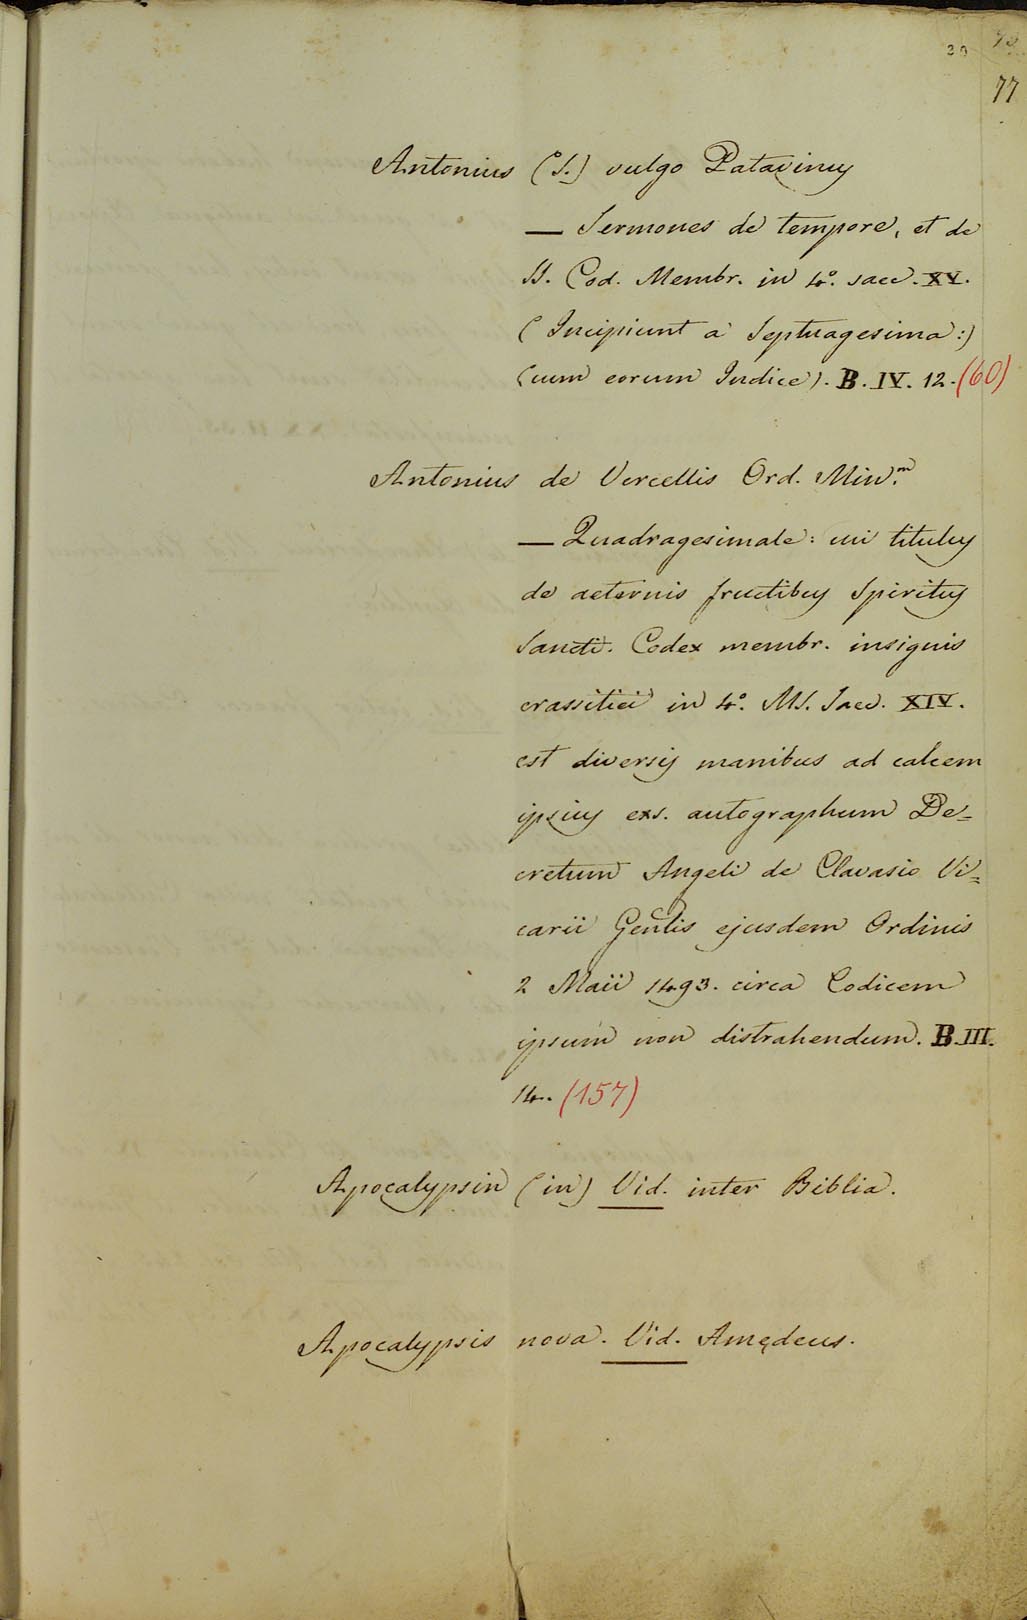 39
77
Antonius (S.) vulgo Patavinus
— Sermones de tempore, et de
SS. Cod. Membr. in 4.° saec. XV.
(Incipiunt a Septuagesima:)
(cum eorum Indice). B. IV. 12. (60)
Antonius de Vercellis Ord. Min.m
— Quadragesimale: cui titulus
de aeternis fructibus Spiritus
Sancti. Codex membr. insignis
crassitiei in 4.° MS. Saec. XIV.
est diversis manibus ad calcem
ipsius exs. autographum De=
cretum Angeli de Clavasio Vi=
carii Genlis ejusdem Ordinis
2 Maii 1493. circa Codicem
ipsum non distrahendum. B. III.
14. (157)
Apocalypsin (in) Vid. inter Biblia.
Apocalypsis nova. Vid. Amędeus.